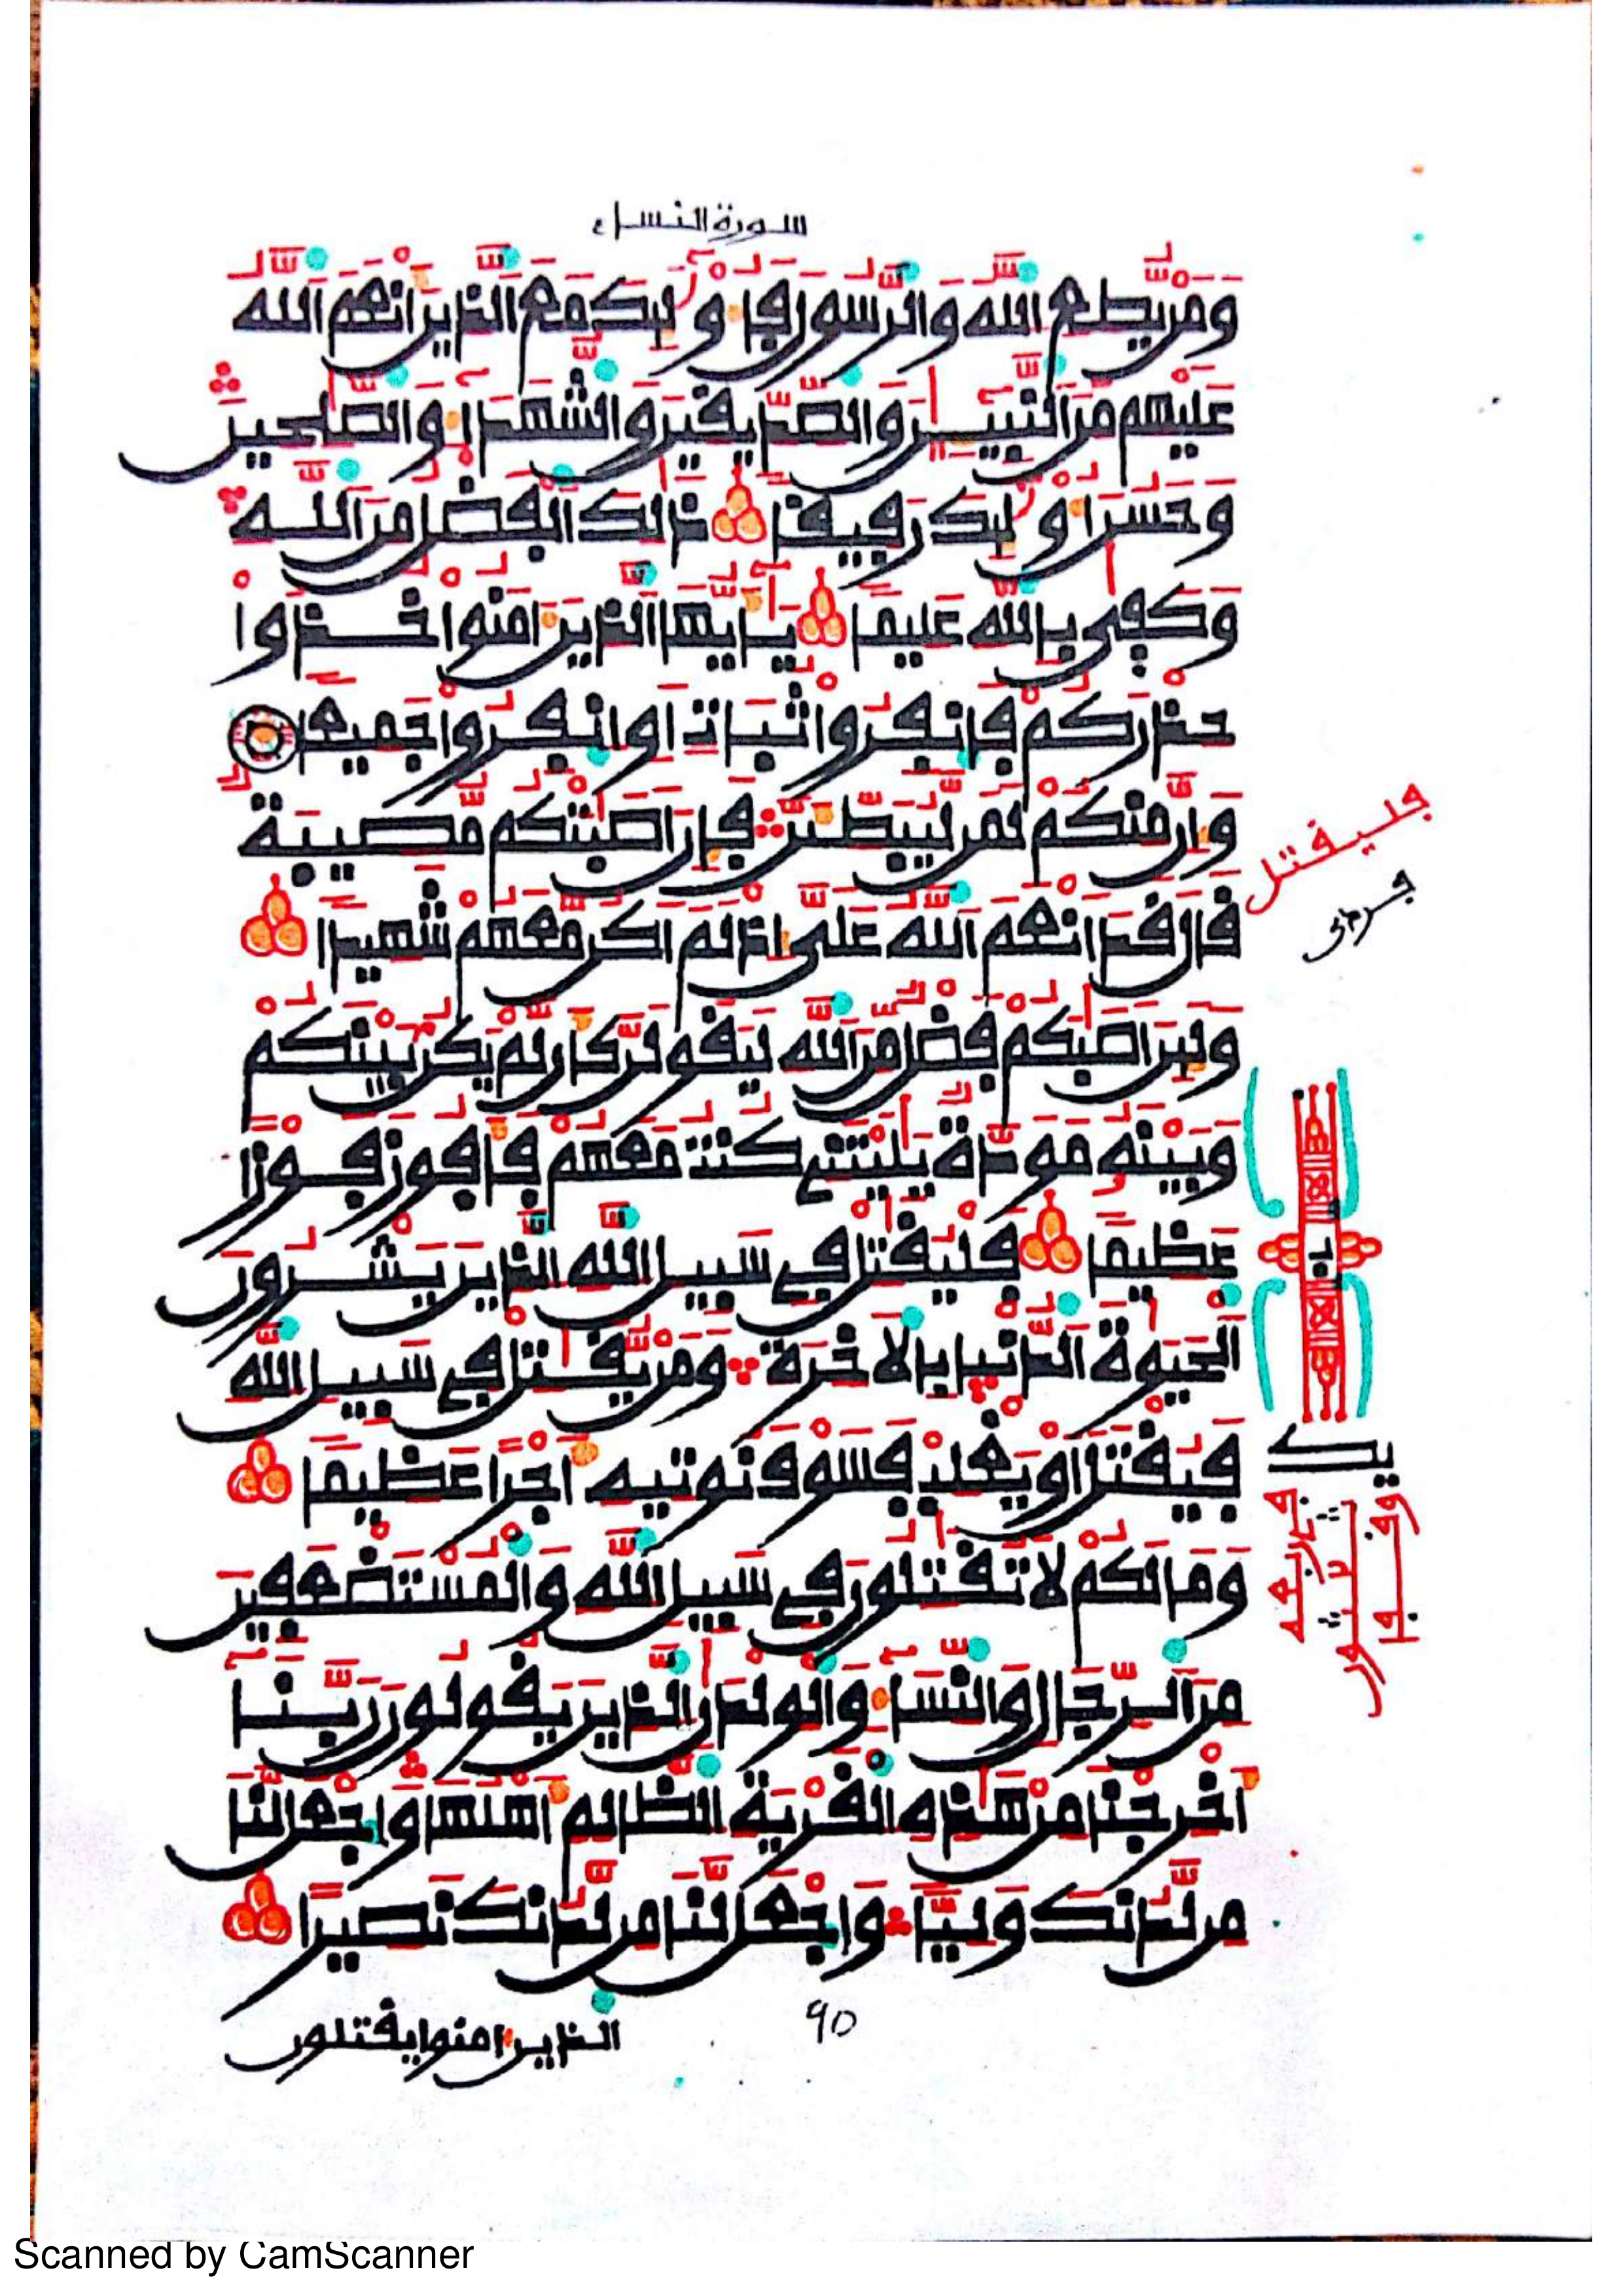 سورة النساء
وَمَنْ يُّطِعِ اِ۬للَّهَ وَالرَّسُولَ فَأُوْلَٰٓئِكَ مَعَ اَ۬لذِينَ أَنْعَمَ اَ۬للَّهُ
عَلَيْهِم مِّنَ اَ۬لنَّبِيٓـِٕينَ وَالصِّدِّيقِينَ وَالشُّهَدَآءِ وَالصَّٰلِحِينَ
وَحَسُنَ أُوْلَٰٓئِكَ رَفِيقاً ذَٰلِكَ اَ۬لْفَضْلُ مِنَ اَ۬للَّهِ
وَكَفَىٰ بِاللَّهِ عَلِيماً يَٰٓأَيُّهَا اَ۬لذِينَ ءَامَنُواْ خُذُواْ
حِذْرَكُمْ فَانفِرُواْ ثُبَاتٍ أَوِ اِ۪نفِرُواْ جَمِيعاً
وَإِنَّ مِنكُمْ لَمَن لَّيُبَطِّئَنَّ فَإِنْ أَصَٰبَتْكُم مُّصِيبَةٌ
قَالَ قَدْ أَنْعَمَ اَ۬للَّهُ عَلَيَّ إِذْ لَمْ أَكُن مَّعَهُمْ شَهِيداً
وَلَئِنْ أَصَٰبَكُمْ فَضْلٌ مِّنَ اَ۬للَّهِ لَيَقُولَنَّ كَأَن لَّمْ يَكُنْ بَيْنَكُمْ
وَبَيْنَهُۥ مَوَدَّةٌ يَٰلَيْتَنِي كُنتُ مَعَهُمْ فَأَفُوزَ فَوْزاً
عَظِيماً فَلْيُقَٰتِلْ فِي سَبِيلِ اِ۬للَّهِ اِ۬لذِينَ يَشْرُونَ
اَ۬لْحَيَوٰةَ اَ۬لدُّنْيَا بِالَاخِرَةِ وَمَنْ يُّقَٰتِلْ فِي سَبِيلِ اِ۬للَّهِ
فَيُقْتَلَ اَوْ يَغْلِبْ فَسَوْفَ نُوتِيهِ أَجْراً عَظِيماً
وَمَا لَكُمْ لَا تُقَٰتِلُونَ فِي سَبِيلِ اِ۬للَّهِ وَالْمُسْتَضْعَفِينَ
مِنَ اَ۬لرِّجَالِ وَالنِّسَآءِ وَالْوِلْدَٰنِ اِ۬لذِينَ يَقُولُونَ رَبَّنَآ
أَخْرِجْنَا مِنْ هَٰذِهِ اِ۬لْقَرْيَةِ اِ۬لظَّالِمِ أَهْلُهَا وَاجْعَل لَّنَا
مِن لَّدُنكَ وَلِيّاً وَاجْعَل لَّنَا مِن لَّدُنكَ نَصِيراً
90
الذين امنوا يقتلون
فليقتل
Scanned by CamScanner